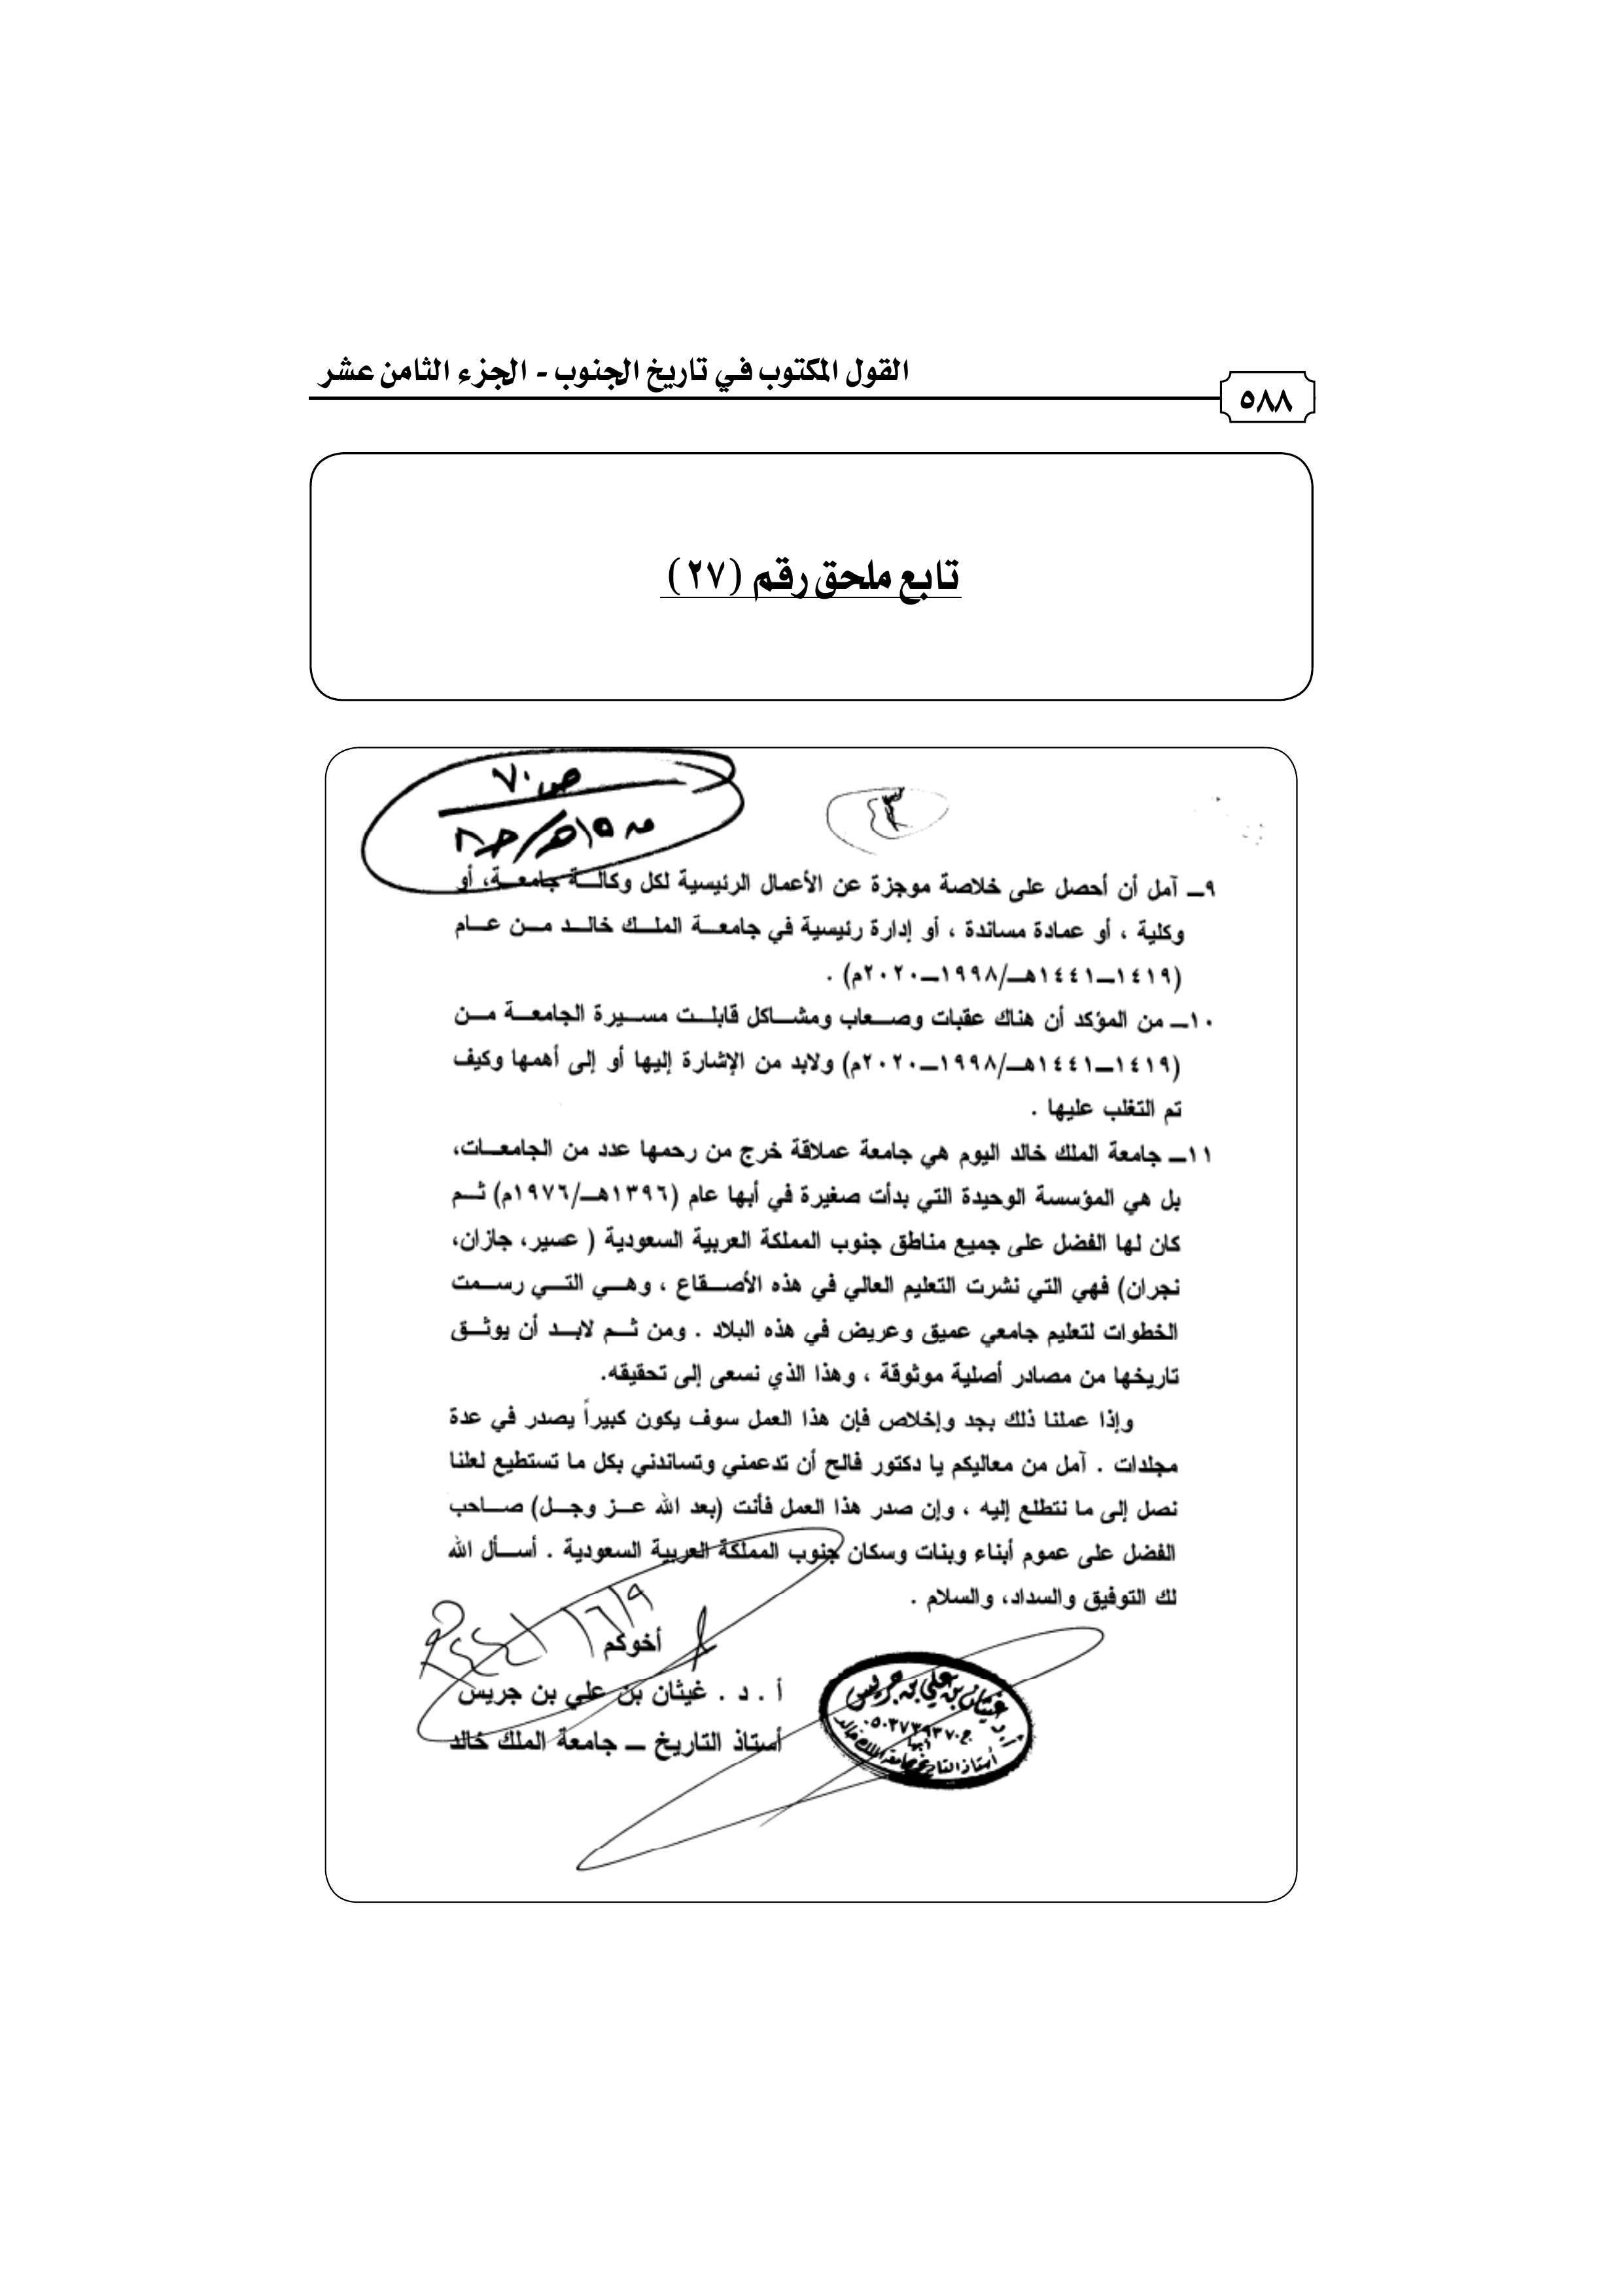 القول المكتوب في تاريخ الجنوب - الجزء الثامن عشر
٥٨٨
تابع ملحق رقم (٢٧)
ص٧٠
٣
٩ــ آمل أن أحصل على خلاصة موجزة عن الأعمال الرئيسية لكل وكالة جامعة، أو
وكلية ، أو عمادة مساندة ، أو إدارة رئيسية في جامعة الملك خالد من عام
(١٤١٩ــ١٤٤١هـ/١٩٩٨ــ٢٠٢٠م) .
١٠ــ من المؤكد أن هناك عقبات وصعاب ومشاكل قابلت مسيرة الجامعة من
(١٤١٩ــ١٤٤١هـ/١٩٩٨ــ٢٠٢٠م) ولابد من الإشارة إليها أو إلى أهمها وكيف
تم التغلب عليها .
١١ــ جامعة الملك خالد اليوم هي جامعة عملاقة خرج من رحمها عدد من الجامعات،
بل هي المؤسسة الوحيدة التي بدأت صغيرة في أبها عام (١٣٩٦هـ/١٩٧٦م) ثم
كان لها الفضل على جميع مناطق جنوب المملكة العربية السعودية ( عسير، جازان،
نجران) فهي التي نشرت التعليم العالي في هذه الأصقاع ، وهي التي رسمت
الخطوات لتعليم جامعي عميق وعريض في هذه البلاد . ومن ثم لابد أن يوثق
تاريخها من مصادر أصلية موثوقة ، وهذا الذي نسعى إلى تحقيقه.
وإذا عملنا ذلك بجد وإخلاص فإن هذا العمل سوف يكون كبيراً يصدر في عدة
مجلدات . آمل من معاليكم يا دكتور فالح أن تدعمني وتساندني بكل ما تستطيع لعلنا
نصل إلى ما نتطلع إليه ، وإن صدر هذا العمل فأنت (بعد الله عز وجل) صاحب
الفضل على عموم أبناء وبنات وسكان جنوب المملكة العربية السعودية . أسأل الله
لك التوفيق والسداد، والسلام .
أخوكم
أ . د . غيثان بن علي بن جريس
أستاذ التاريخ ــ جامعة الملك خالد
أ.د غيثان بن علي بن جريس
أبها
أستاذ التاريخ جامعة الملك خالد